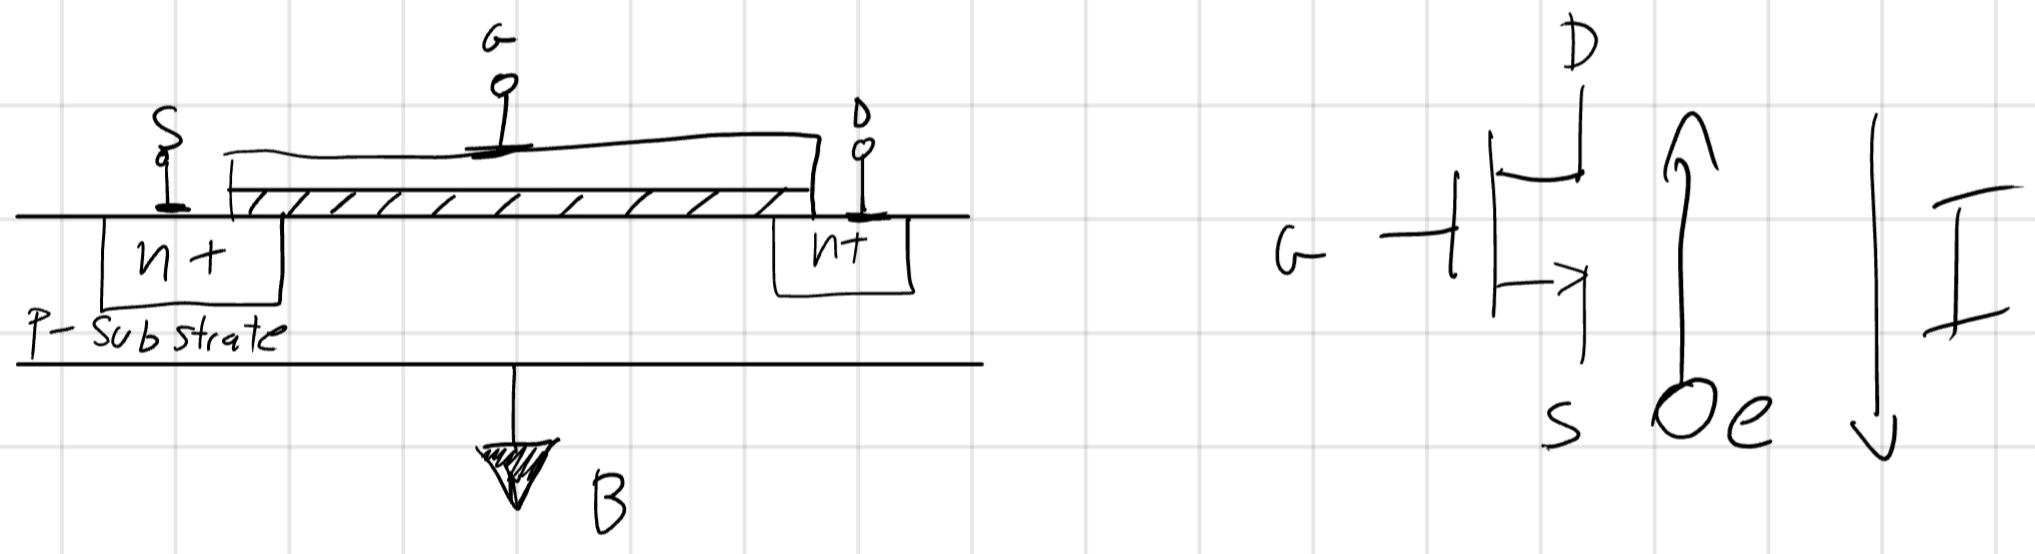 G
S
D
n+
n+
P-Substrate
B
D
G
S
e
I